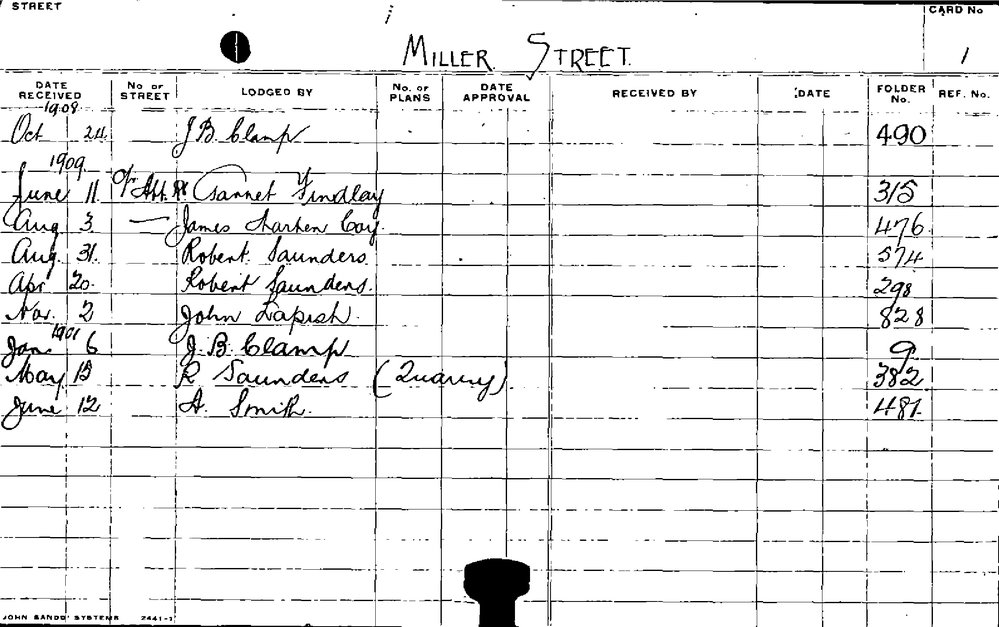 STREET
MILLER STREET.
CARD No
1
DATE RECEIVED No OF STREET LODGED BY No. OF PLANS DATE APPROVAL RECEIVED BY DATE FOLDER No. REF. No.
1908
Oct 24 J B. Clamp 490
1909
June 11 Findlay 315
Aug 3 — James 476
Aug. 31. Robert Saunders 574
Apr 20. Robert Saunders. 298
Nov. 2 John Lapish. 828
Jan 6 J. B. Clamp 9
May R Saunders (Quarry) 382
June 12 A. Smith. 481
JOHN SANDS' SYSTEMS 2441-1